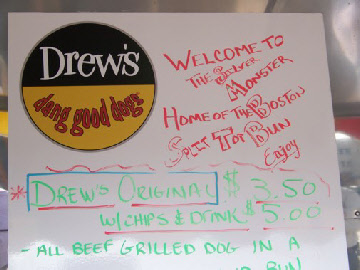 Drew's
dang good dogs
WELCOME TO
THE SILVER
MONSTER
HOME OF THE BOSTON
SPLIT TOP BUN
Enjoy
* DREW'S ORIGINAL $3.50
W/CHIPS & DRINK $5.00
- ALL BEEF GRILLED DOG IN A
BUN